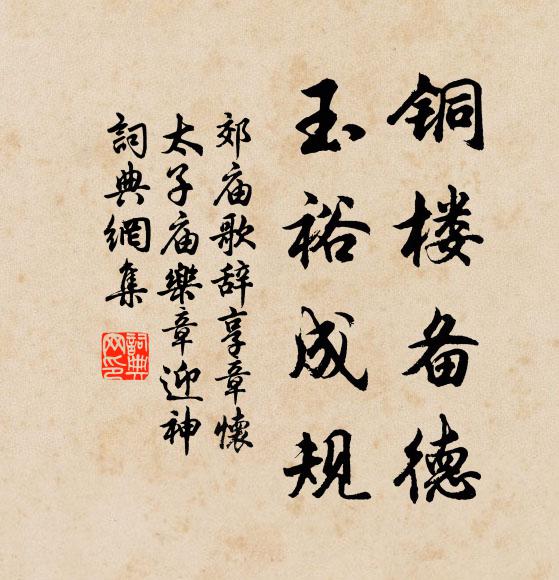 铜楼备德
玉裕成规
郊庙歌辞享章懷
太子庙樂章迎神
詞典網集
詞典
网印